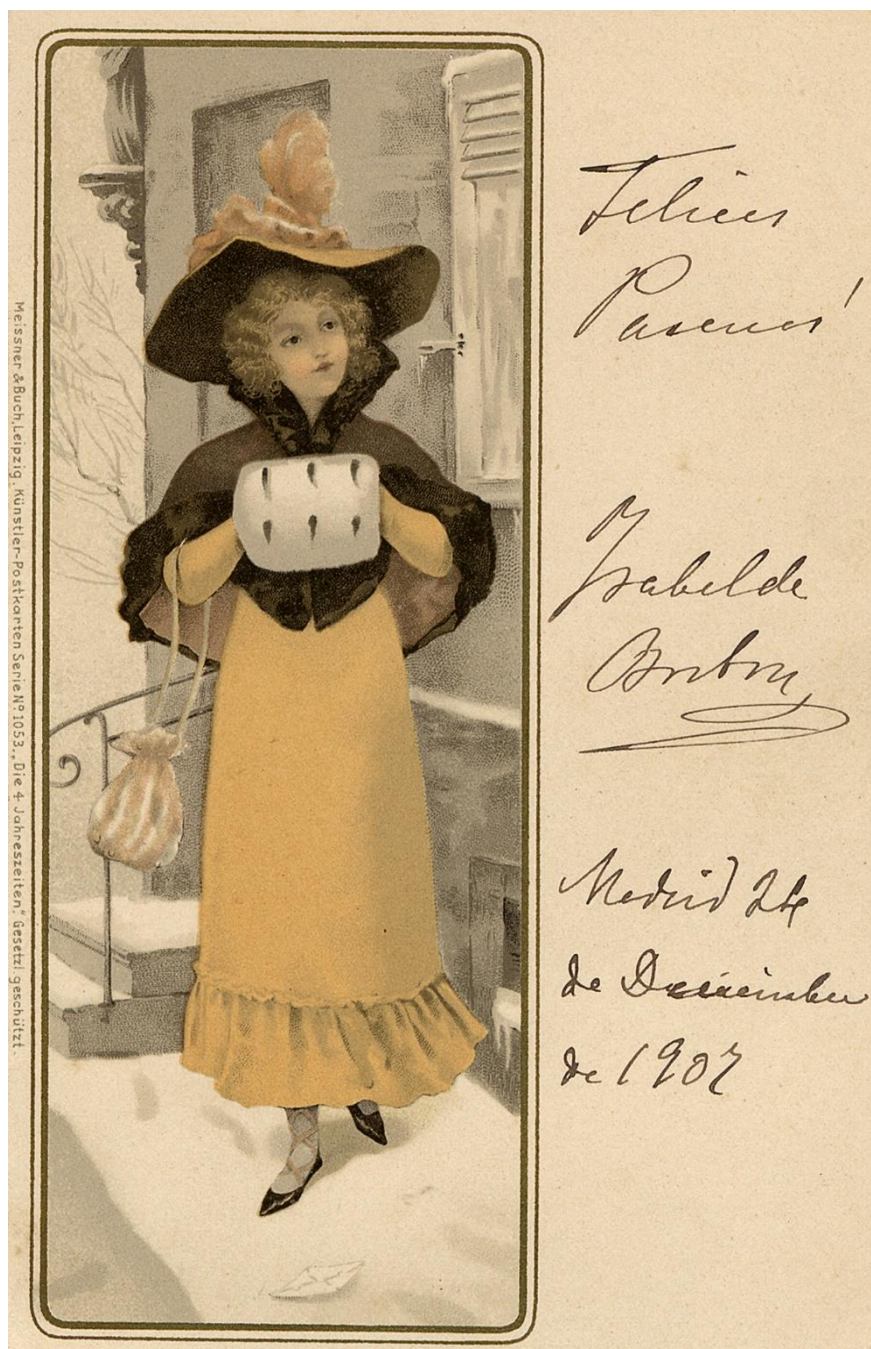 Meissner & Buch, Leipzig. Künstler-Postkarten Serie Nº 1053. „Die 4 Jahreszeiten." Gesetzl geschützt.
Felices
Pascuas
Isabel de
Borbon
Madrid 24
de Deciembre
de 1902